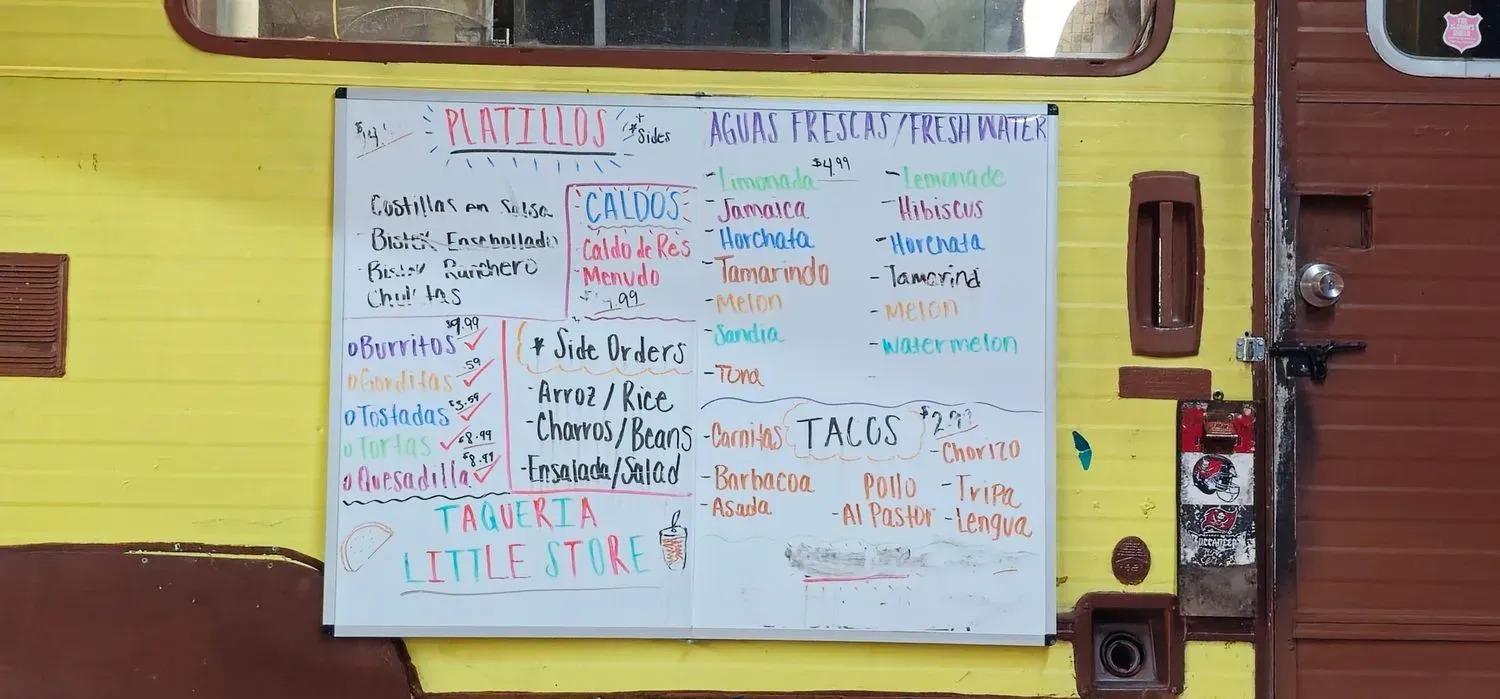 PLATILLOS
Sides
Costillas en Salsa
Bistek Encebollado
Ranchero
CALDOS
Caldo de Res
Menudo
.99
o Burritos $9.99
o Gorditas .59
o Tostadas $3.59
o Tortas $8.99
o Quesadilla $8.99
* Side Orders
- Arroz / Rice
- Charros / Beans
- Ensalada / Salad
TAQUERIA
LITTLE STORE
AGUAS FRESCAS / FRESH WATER
$4.99
- Limonada - Lemonade
- Jamaica - Hibiscus
- Horchata - Horchata
- Tamarindo - Tamarind
- Melon - Melon
- Sandia - Watermelon
- Tuna
TACOS
- Carnitas - Chorizo
- Barbacoa Pollo - Tripa
- Asada - Al Pastor - Lengua
BUCCANEERS